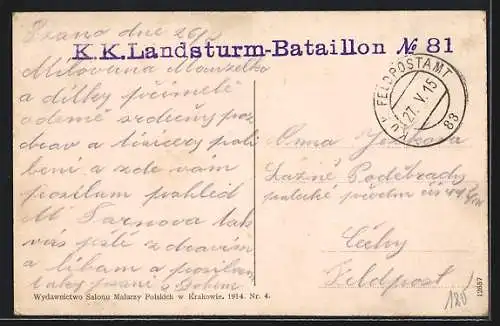 Psano dne 26/5
K.K. Landsturm-Bataillon № 81
Milovana Manzelko
a dítky přijměte
odemě srdečný poz
drav a tisícery polí
bení a zde vám
posílam pohled
M Tarnova tak
vás ještě zdravím
a líbam a posílam
K.u.K. FELDPOSTAMT
27. V. 15
83
Anna
Lázně Poděbrady
Čechy
Feldpost
Wydawnictwo Salonu Malarzy Polskich w Krakowie. 1914. Nr. 4.
12657
120